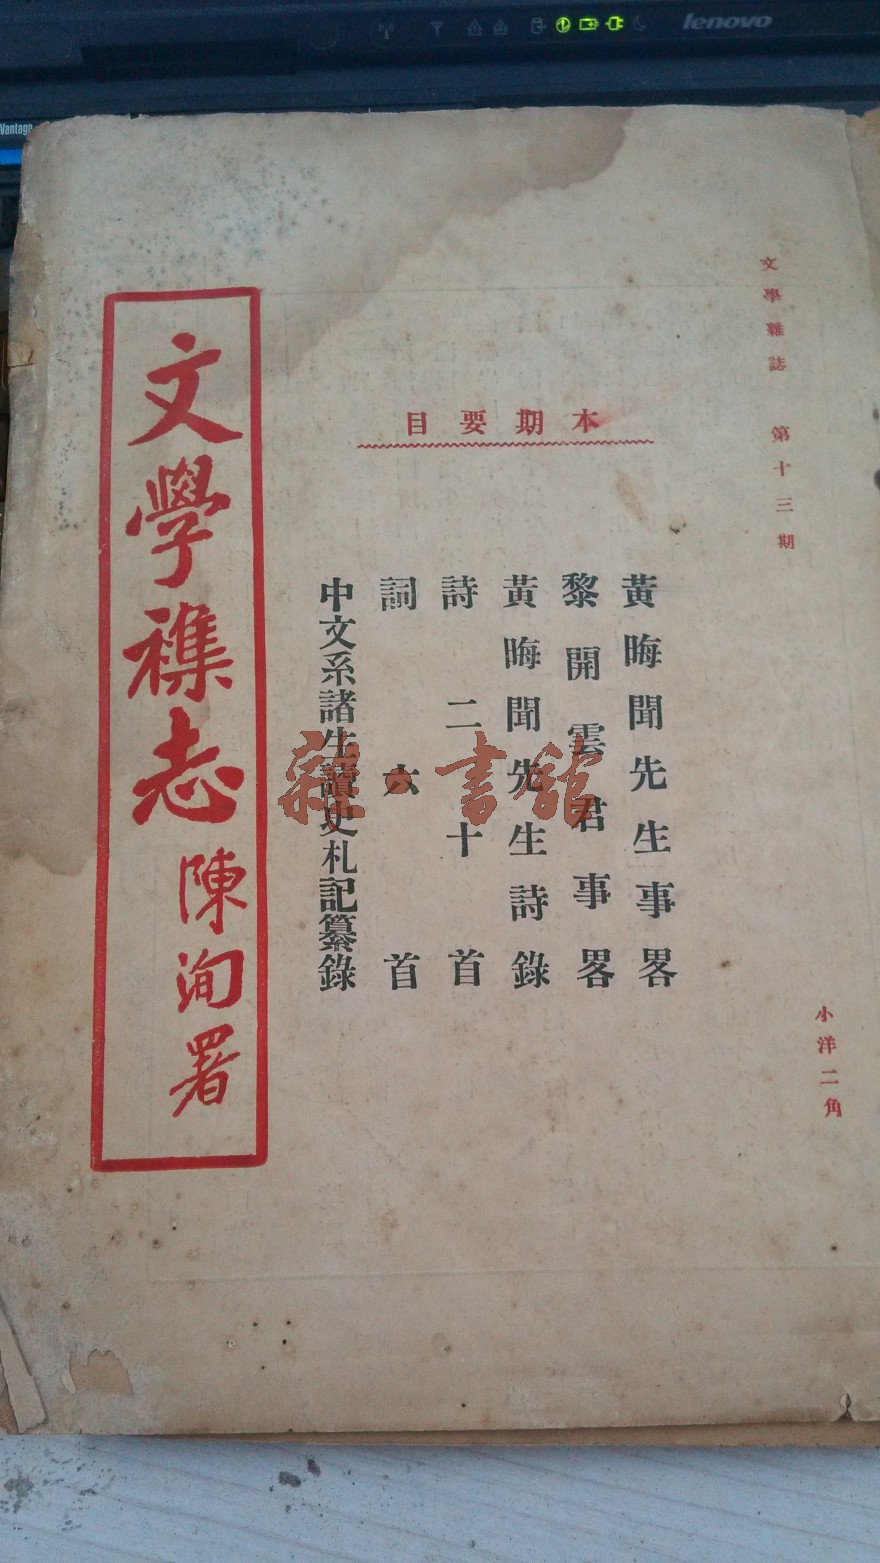 lenovo
Vantage
文學雜誌　第十三期
小洋二角
本期要目
黃晦聞先生事畧
黎開雲君事畧
黃晦聞先生詩錄
詩二十首
詞六首
中文系諸生讀史札記纂錄
文學襍志
陳洵署
雜·書館